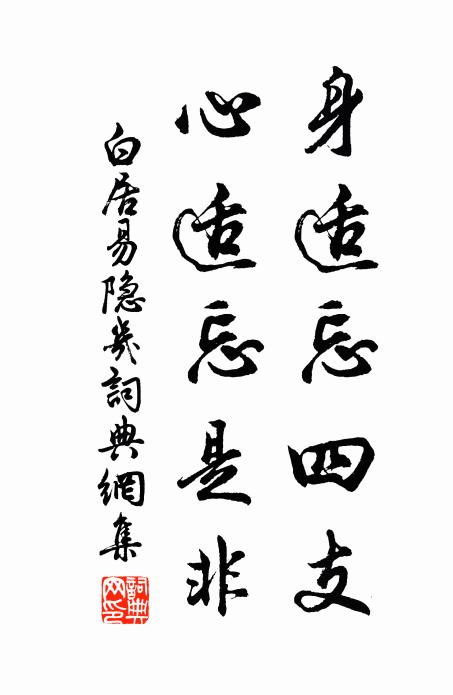 身适忘四支
心适忘是非
白居易隐几詞典網集
詞典网印